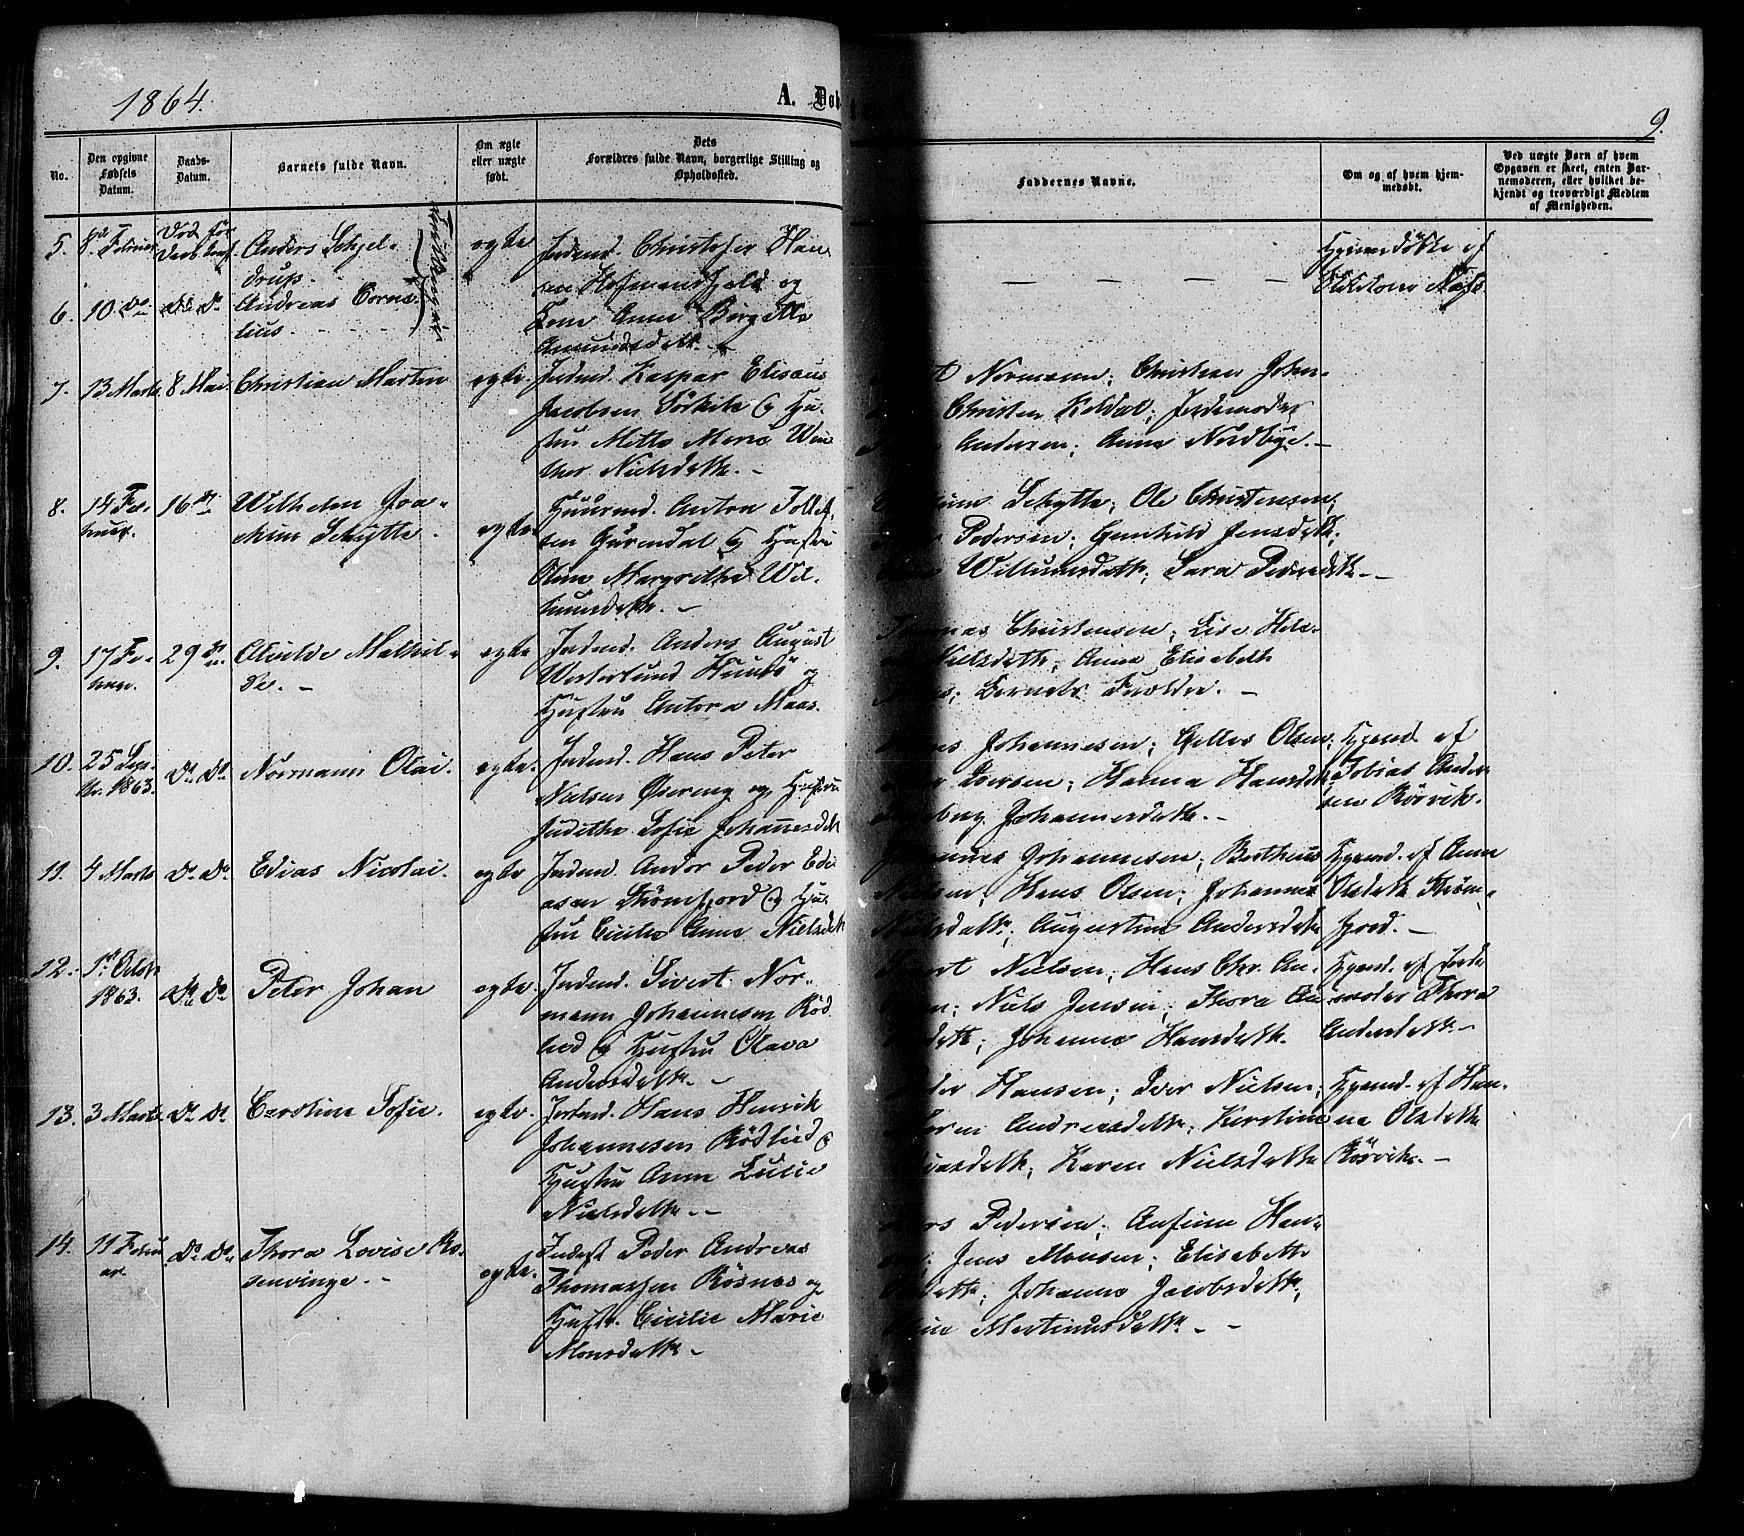 1864.
A. Døb
9.
No.
Den opgivne Fødsels Datum.
Daabs-Datum.
Barnets fulde Navn.
Om ægte eller uægte født.
Dets Forældres fulde Navn, borgerlige Stilling og Opholdssted.
Faddernes Navne.
Om og af hvem hjemmedøbt.
Ved uægte Børn af hvem Opgaven er skeet, enten Barnemoderen, eller hvilket bekjendt og troværdigt Medlem af Menigheden.
5.
8de Februar
Død før
Anders Schjel-
drup.
Tvillinger
egte
Indend. Christofer Han
sen og
Lene Anne Birgitte
Amundsdatt. -
Hjemmedøbte af
6.
10. do
do do
Andreas Corne-
lius.
7.
13 Marts
8 Mai.
Christian Marten
egte.
Indend. Kaspar Elisæus
Jacobsen og Hu-
stru Mette Merie Win
ther Nielsdatt. -
Normann; Christian Johan-
Christen Koldal; Jordemoder
Andersen; Anne Nordbye. -
8.
14 Fe-
bruar.
16 do
Wilhelm Joa-
kim Schytte.
egte.
Huusmd. Anton Tollef-
sen Gurendal og Hustru
Oline Margrethe Wil-
lumsdatt. -
Schytte; Ole Christensen;
Pedersen; Gunhild Jensdatt;
Willumsdatt; Sara Pedersdatt. -
9.
17 Fe-
bruar.
29 do
Alvilde Mathil-
de. -
egte
Indend. Anders August
Westerlund og
Hustru Antora Maas.
Thomas Christensen; Lise Hele-
Nielsdatt; Anne Elisabeth
Barnets Forældre. -
10.
25 Sep-
tbr. 1863.
do do
Normann Olai.
egte.
Indend. Hans Peter
Nielsen Øiereng og Hustru
Judithe Sofie Johannesdatt
Johannesen; Olsen;
Iversen; Hanna Hansdatt
Johannesdatt. -
Hjemd. af
Tobias Ander-
sen Rørvik.
11.
4 Marts
do do
Edias Nicolai.
egte
Indend. Andor Peder Edi
asen Strømfjord og Hu-
stru Cecilie Anne Nielsdatt
Johannesen; Bertheus
Nielsen; Hans Olsen; Johanne
Nielsdatt; Augustine Andersdatt
Hjemd. af Anne
Olsdatt Strøm-
fjord. -
12.
1st Octob
1863.
do do
Peter Johan
egte.
Indend. Sivert Nor-
mann Johannesen Rød
lied og Hustru Olava
Andersdatt. -
Nielsen; Hans Chr. An-
Niels Jensen; Thora An
datt; Johanne Hansdatt.
Hjemd. af Jorde
moder Thora
Andersdatt. -
13.
3 Marts
do do
Caroline Sofie.
egte.
Indend. Hans Henrik
Johannesen Rødlied og
Hustru Anne Lucie
Nielsdatt. -
Hansen; Iver Nielsen;
Andreasdatt; Kerstine
datt; Karen Nielsdatt
Hjemd. af Han-
na Olsdatt
Rørvik. -
14.
11 Febru
ar.
do do
Thora Lovise Ro-
senvinge. -
egte.
Inderst Peder Andreas
Thomassen Røsnes og
Hustr. Cecilie Marie
Monsdatt -
Pedersen; Anfinn Han-
Jens Monsen; Elisabeth
datt; Johanne Jacobsdatt;
Martinusdatt. -